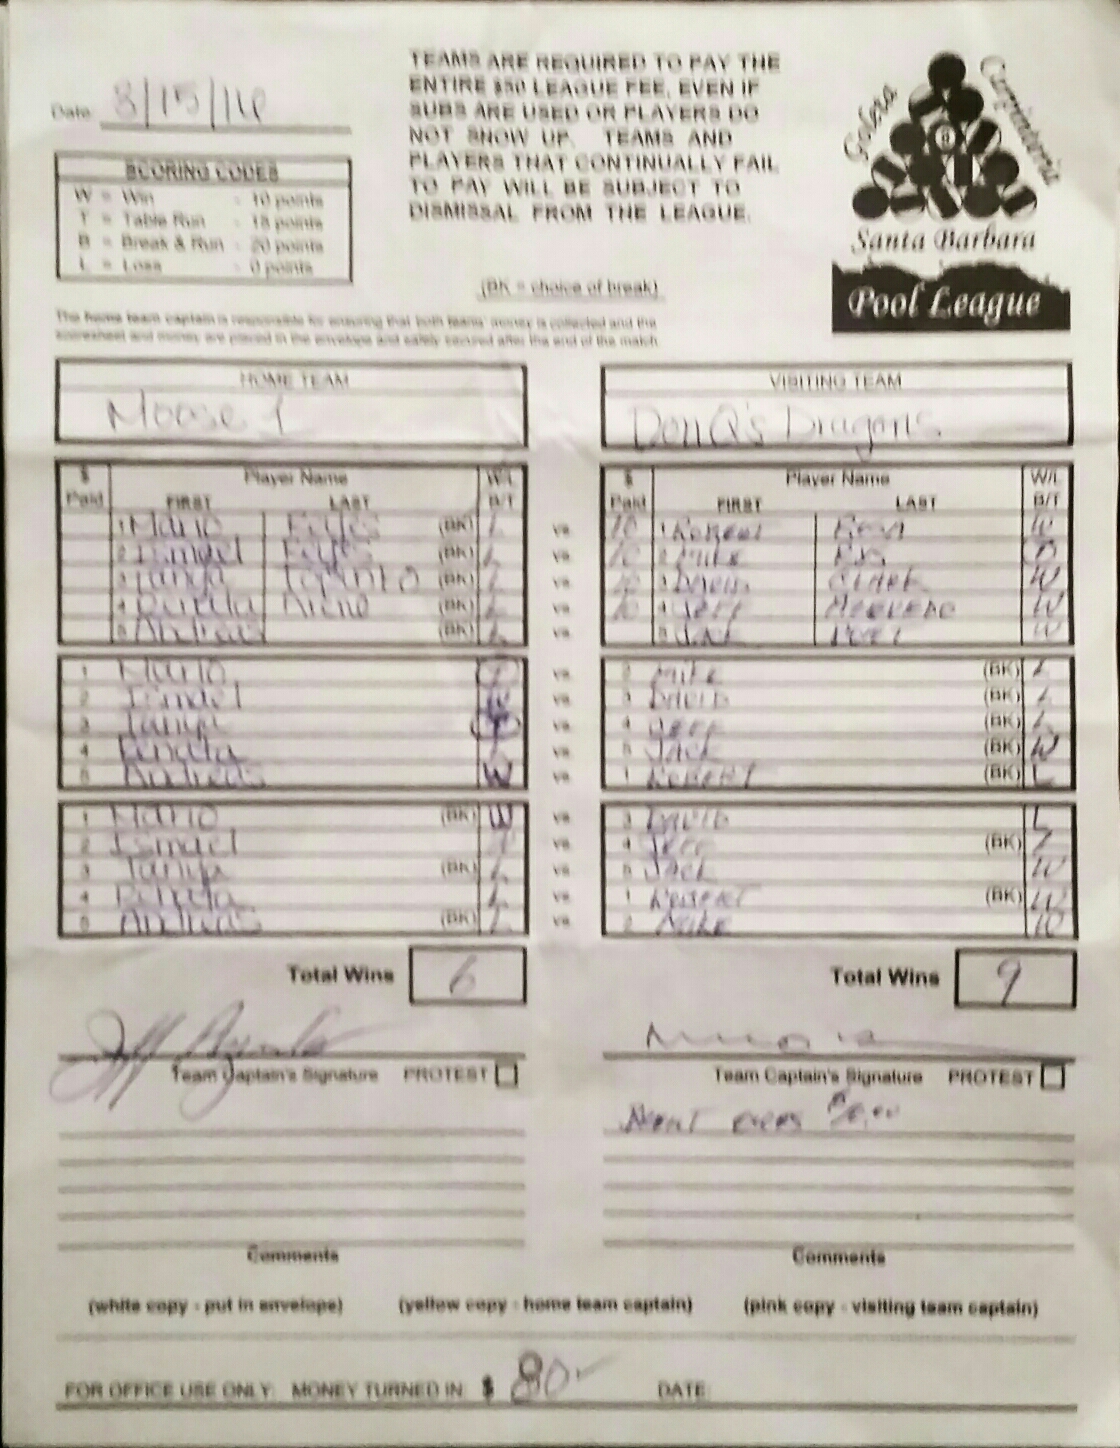 Date 3/15/16
TEAMS ARE REQUIRED TO PAY THE
ENTIRE $50 LEAGUE FEE, EVEN IF
SUBS ARE USED OR PLAYERS DO
NOT SHOW UP. TEAMS AND
PLAYERS THAT CONTINUALLY FAIL
TO PAY WILL BE SUBJECT TO
DISMISSAL FROM THE LEAGUE.
Goleta
Carpinteria
Santa Barbara
Pool League
SCORING CODES
W = Win - 10 points
T = Table Run - 15 points
B = Break & Run - 20 points
L = Loss - 0 points
(BK = choice of break)
The home team captain is responsible for ensuring that both teams' money is collected and the
scoresheet and money are placed in the envelope and safely secured after the end of the match
HOME TEAM
Moose 1
VISITING TEAM
DonQ's Dragons
$ Paid Player Name FIRST LAST W/L B/T
$ Paid Player Name FIRST LAST W/L B/T
1 Mario (BK) L vs 10 1 Robert W
2 Ismael (BK) L vs 10 2 Mike
3 Tanya (BK) L vs 10 3 David Clark W
4 Renata (BK) L vs 10 4 Jeff W
5 Andreas (BK) L vs 5 Jack W
1 Mario vs 2 Mike (BK) L
2 Ismael W vs 3 David (BK) L
3 Tanya vs 4 Jeff (BK) L
4 Renata L vs 5 Jack (BK) W
5 Andreas W vs 1 Robert (BK) L
1 Mario (BK) W vs 3 David L
2 Ismael vs 4 Jeff (BK) L
3 Tanya (BK) L vs 5 Jack W
4 Renata L vs 1 Robert (BK) W
5 Andreas (BK) L vs 2 Mike W
Total Wins 6
Total Wins 9
Team Captain's Signature PROTEST
Team Captain's Signature PROTEST
Comments
Comments
(white copy - put in envelope) (yellow copy - home team captain) (pink copy - visiting team captain)
FOR OFFICE USE ONLY: MONEY TURNED IN: $ 80- DATE: